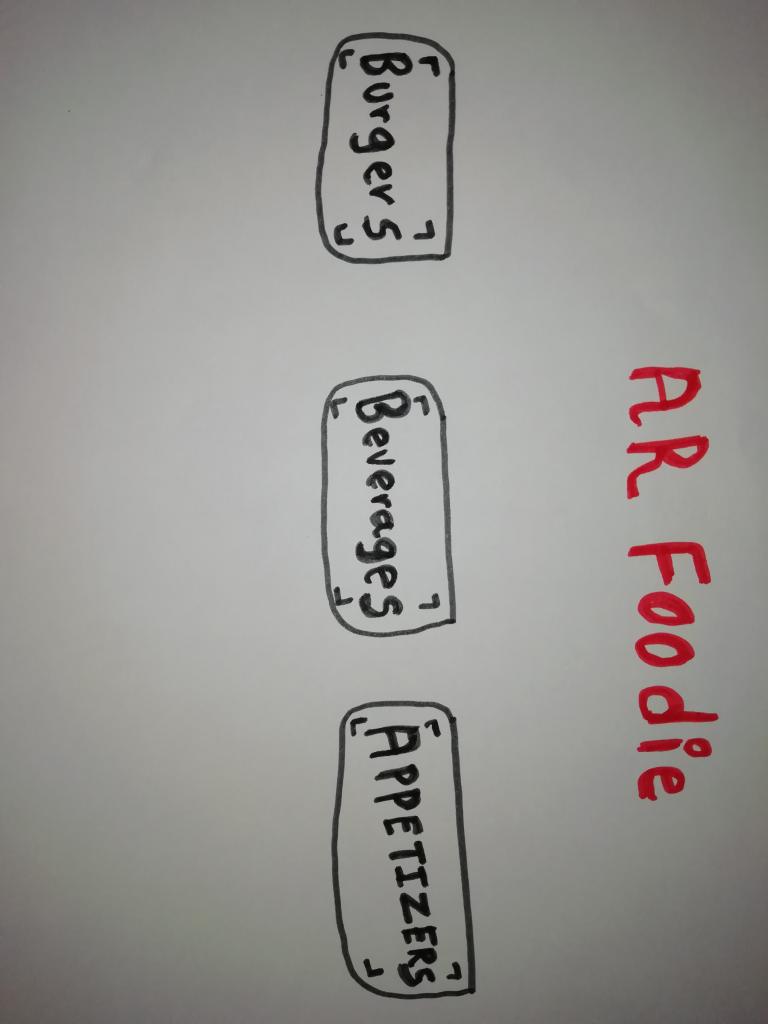 AR Foodie
Burgers
Beverages
APPETIZERS